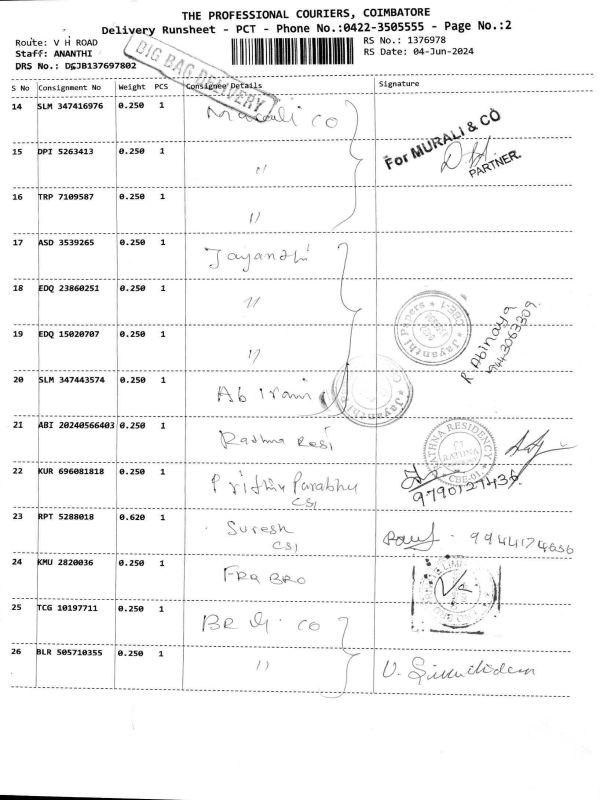 THE PROFESSIONAL COURIERS, COIMBATORE
Delivery Runsheet - PCT - Phone No.:0422-3505555 - Page No.:2
Route: V H ROAD
Staff: ANANTHI
DRS No.: DEJB137697802
RS No.: 1376978
RS Date: 04-Jun-2024
BIG BAG DELIVERY
S No Consignment No Weight PCS Consignee Details Signature
14 SLM 347416976 0.250 1 Murali CO
For MURALI & CO
PARTNER.
15 DPI 5263413 0.250 1 "
16 TRP 7109587 0.250 1 "
17 ASD 3539265 0.250 1 Jayanthi
18 EDQ 23860251 0.250 1 "
Jayanthi Papers
R. Abinaya
9443063309.
19 EDQ 15020707 0.250 1 "
20 SLM 347443574 0.250 1 Abirami
21 ABI 20240566403 0.250 1 Rathna Resi
RATHNA RESIDENCY
RATHNA
CBE-01.
22 KUR 696081818 0.250 1 Prithiv Parabhu
CSI
9790127436
23 RPT 5288018 0.620 1 Suresh
CSI
9944174656
24 KMU 2820036 0.250 1 FRA BRO
25 TCG 10197711 0.250 1 BR CO
26 BLR 505710355 0.250 1 "